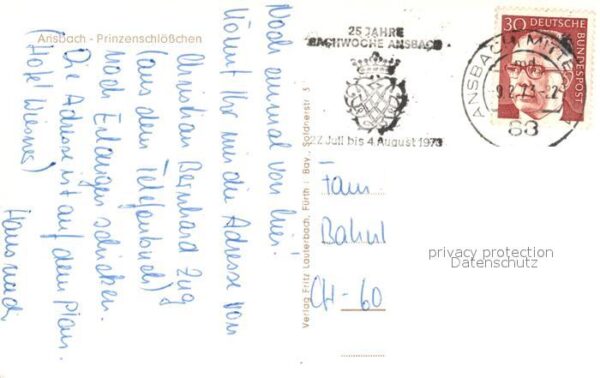 Ansbach - Prinzenschlößchen
Noch einmal von hier!
Könnt Ihr mir die Adresse von
Christian Bernhard Zug
(aus dem Telefonbuch)
nach Erlangen schicken.
Die Adresse ist auf dem Plan.
(Hotel Wiesner)
Verlag Fritz Lauterbach, Fürth i. Bay., Soldnerstr. 5
25 JAHRE
BACHWOCHE ANSBACH
27. Juli bis 4. August 1973
ANSBACH, MITTE
md
-9.2.73.-2
88
30 DEUTSCHE
BUNDESPOST
Fam.
CH-60
privacy protection
Datenschutz